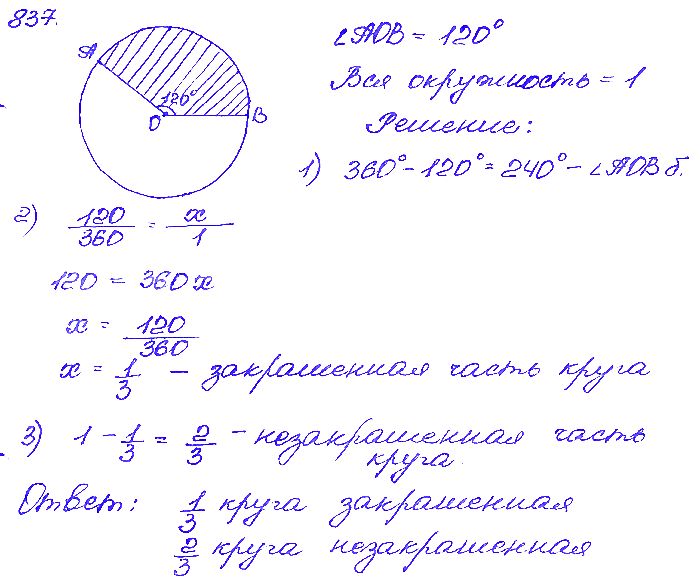 837.
A
120°
O
B
∠AOB = 120°
Вся окружность = 1
Решение:
1) 360° - 120° = 240° - ∠AOB б.
2) 120/360 = x/1
120 = 360x
x = 120/360
x = 1/3 - закрашенная часть круга
3) 1 - 1/3 = 2/3 - незакрашенная часть
круга
Ответ: 1/3 круга закрашенная
2/3 круга незакрашенная